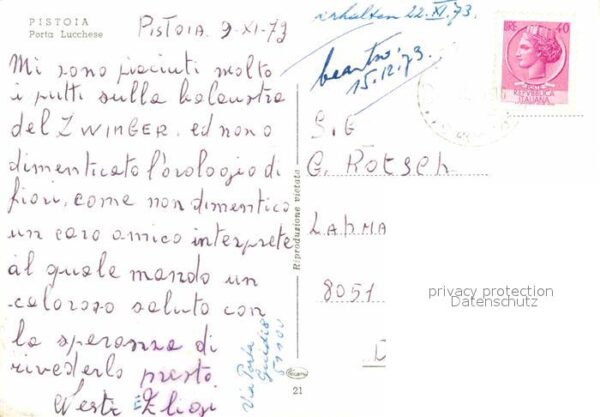 PISTOIA
Porta Lucchese
PISTOIA 9-XI-73
Mi sono piaciuti molto
i putti sulla balaustra
del ZWINGER, ed non o
dimenticato l'orologio di
fiori, come non dimentico
un caro amico interprete
al quale mando un
caloroso saluto con
la speranza di
rivederlo presto
Eligi
erhalten 22.XI.73.
beantw.
15.12.73.
LIRE 40
REPVBBLICA
ITALIANA
S.G
G. Rotsch
LABMA
8051
D
privacy protection
Datenschutz
Riproduzione vietata
Via Porta
51100
21